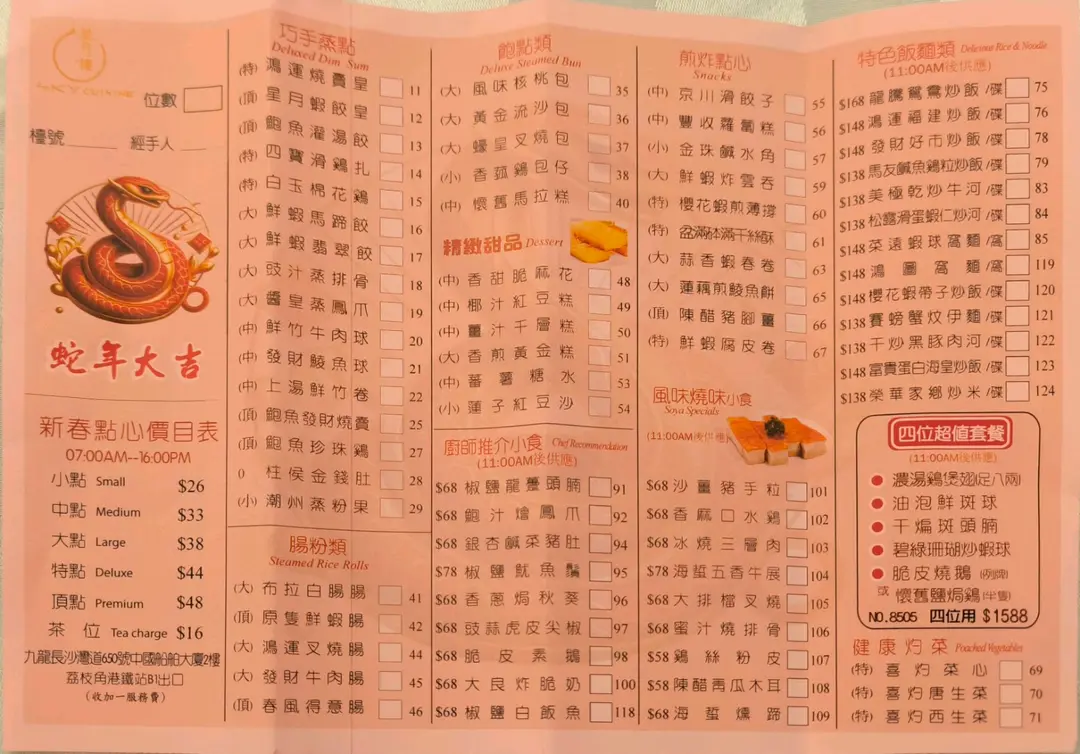 星月樓
FANCY CUISINE
位數
檯號 經手人
蛇年大吉
新春點心價目表
07:00AM--16:00PM
小點 Small $26
中點 Medium $33
大點 Large $38
特點 Deluxe $44
頂點 Premium $48
茶 位 Tea charge $16
九龍長沙灣道650號中國船舶大廈2樓
荔枝角港鐵站B1出口
(收加一服務費)
巧手蒸點
Deluxed Dim Sum
(特) 鴻運燒賣皇 11
(頂) 星月蝦餃皇 12
(頂) 鮑魚灌湯餃 13
(特) 四寶滑鷄扎 14
(特) 白玉棉花鷄 15
(大) 鮮蝦馬蹄餃 16
(大) 鮮蝦翡翠餃 17
(大) 豉汁蒸排骨 18
(大) 醬皇蒸鳳爪 19
(中) 鮮竹牛肉球 20
(中) 發財鯪魚球 21
(中) 上湯鮮竹卷 22
(頂) 鮑魚發財燒賣 25
(頂) 鮑魚珍珠鷄 27
() 柱侯金錢肚 28
(小) 潮州蒸粉果 29
腸粉類
Steamed Rice Rolls
(大) 布拉白腸腸 41
(頂) 原隻鮮蝦腸 42
(大) 鴻運叉燒腸 44
(大) 發財牛肉腸 45
(頂) 春風得意腸 46
飽點類
Deluxe Steamed Bun
(大) 風味核桃包 35
(大) 黃金流沙包 36
(大) 蠔皇叉燒包 37
(小) 香菰鷄包仔 38
(中) 懷舊馬拉糕 40
精緻甜品 Dessert
(中) 香甜脆麻花 48
(中) 椰汁紅豆糕 49
(中) 薑汁千層糕 50
(大) 香煎黃金糕 51
(中) 蕃薯糖水 53
(小) 蓮子紅豆沙 54
廚師推介小食 Chef Recommendation
(11:00AM後供應)
$68 椒鹽龍躉頭腩 91
$68 鮑汁燴鳳爪 92
$68 銀杏鹹菜豬肚 94
$78 椒鹽魷魚鬚 95
$68 香蔥焗秋葵 96
$68 豉蒜虎皮尖椒 97
$68 脆皮素鵝 98
$68 大良炸脆奶 100
$68 椒鹽白飯魚 118
煎炸點心
Snacks
(中) 京川滑餃子 55
(中) 豐收蘿蔔糕 56
(小) 金珠鹹水角 57
(大) 鮮蝦炸雲吞 59
(特) 櫻花蝦煎薄撐 60
(特) 盆滿砵滿千絲酥 61
(大) 蒜香蝦春卷 63
(大) 蓮藕煎鯪魚餅 65
(頂) 陳醋豬腳薑 66
(特) 鮮蝦腐皮卷 67
風味燒味小食
Soya Specials
(11:00AM後供應)
$68 沙薑豬手粒 101
$68 香麻口水鷄 102
$68 冰燒三層肉 103
$78 海蜇五香牛展 104
$68 大排檔叉燒 105
$68 蜜汁燒排骨 106
$58 鷄絲粉皮 107
$58 陳醋青瓜木耳 108
$68 海蜇燻蹄 109
特色飯麵類 Delicious Rice & Noodle
(11:00AM後供應)
$168 龍騰鴛鴦炒飯/碟 75
$148 鴻運福建炒飯/碟 76
$148 發財好市炒飯/碟 78
$138 馬友鹹魚鷄粒炒飯/碟 79
$138 美極乾炒牛河/碟 83
$138 松露滑蛋蝦仁炒河/碟 84
$148 菜遠蝦球窩麵/窩 85
$148 鴻圖窩麵/窩 119
$148 櫻花蝦帶子炒飯/碟 120
$138 賽螃蟹炆伊麵/碟 121
$138 干炒黑豚肉河/碟 122
$148 富貴蛋白海皇炒飯/碟 123
$138 榮華家鄉炒米/碟 124
四位超值套餐
(11:00AM後供應)
濃湯鷄煲翅(足八兩)
油泡鮮斑球
干煸斑頭腩
碧綠珊瑚炒蝦球
脆皮燒鵝(例牌)
或 懷舊鹽焗鷄(半隻)
NO.8505 四位用 $1588
健康灼菜 Poached Vegetables
(特) 喜灼菜心 69
(特) 喜灼唐生菜 70
(特) 喜灼西生菜 71